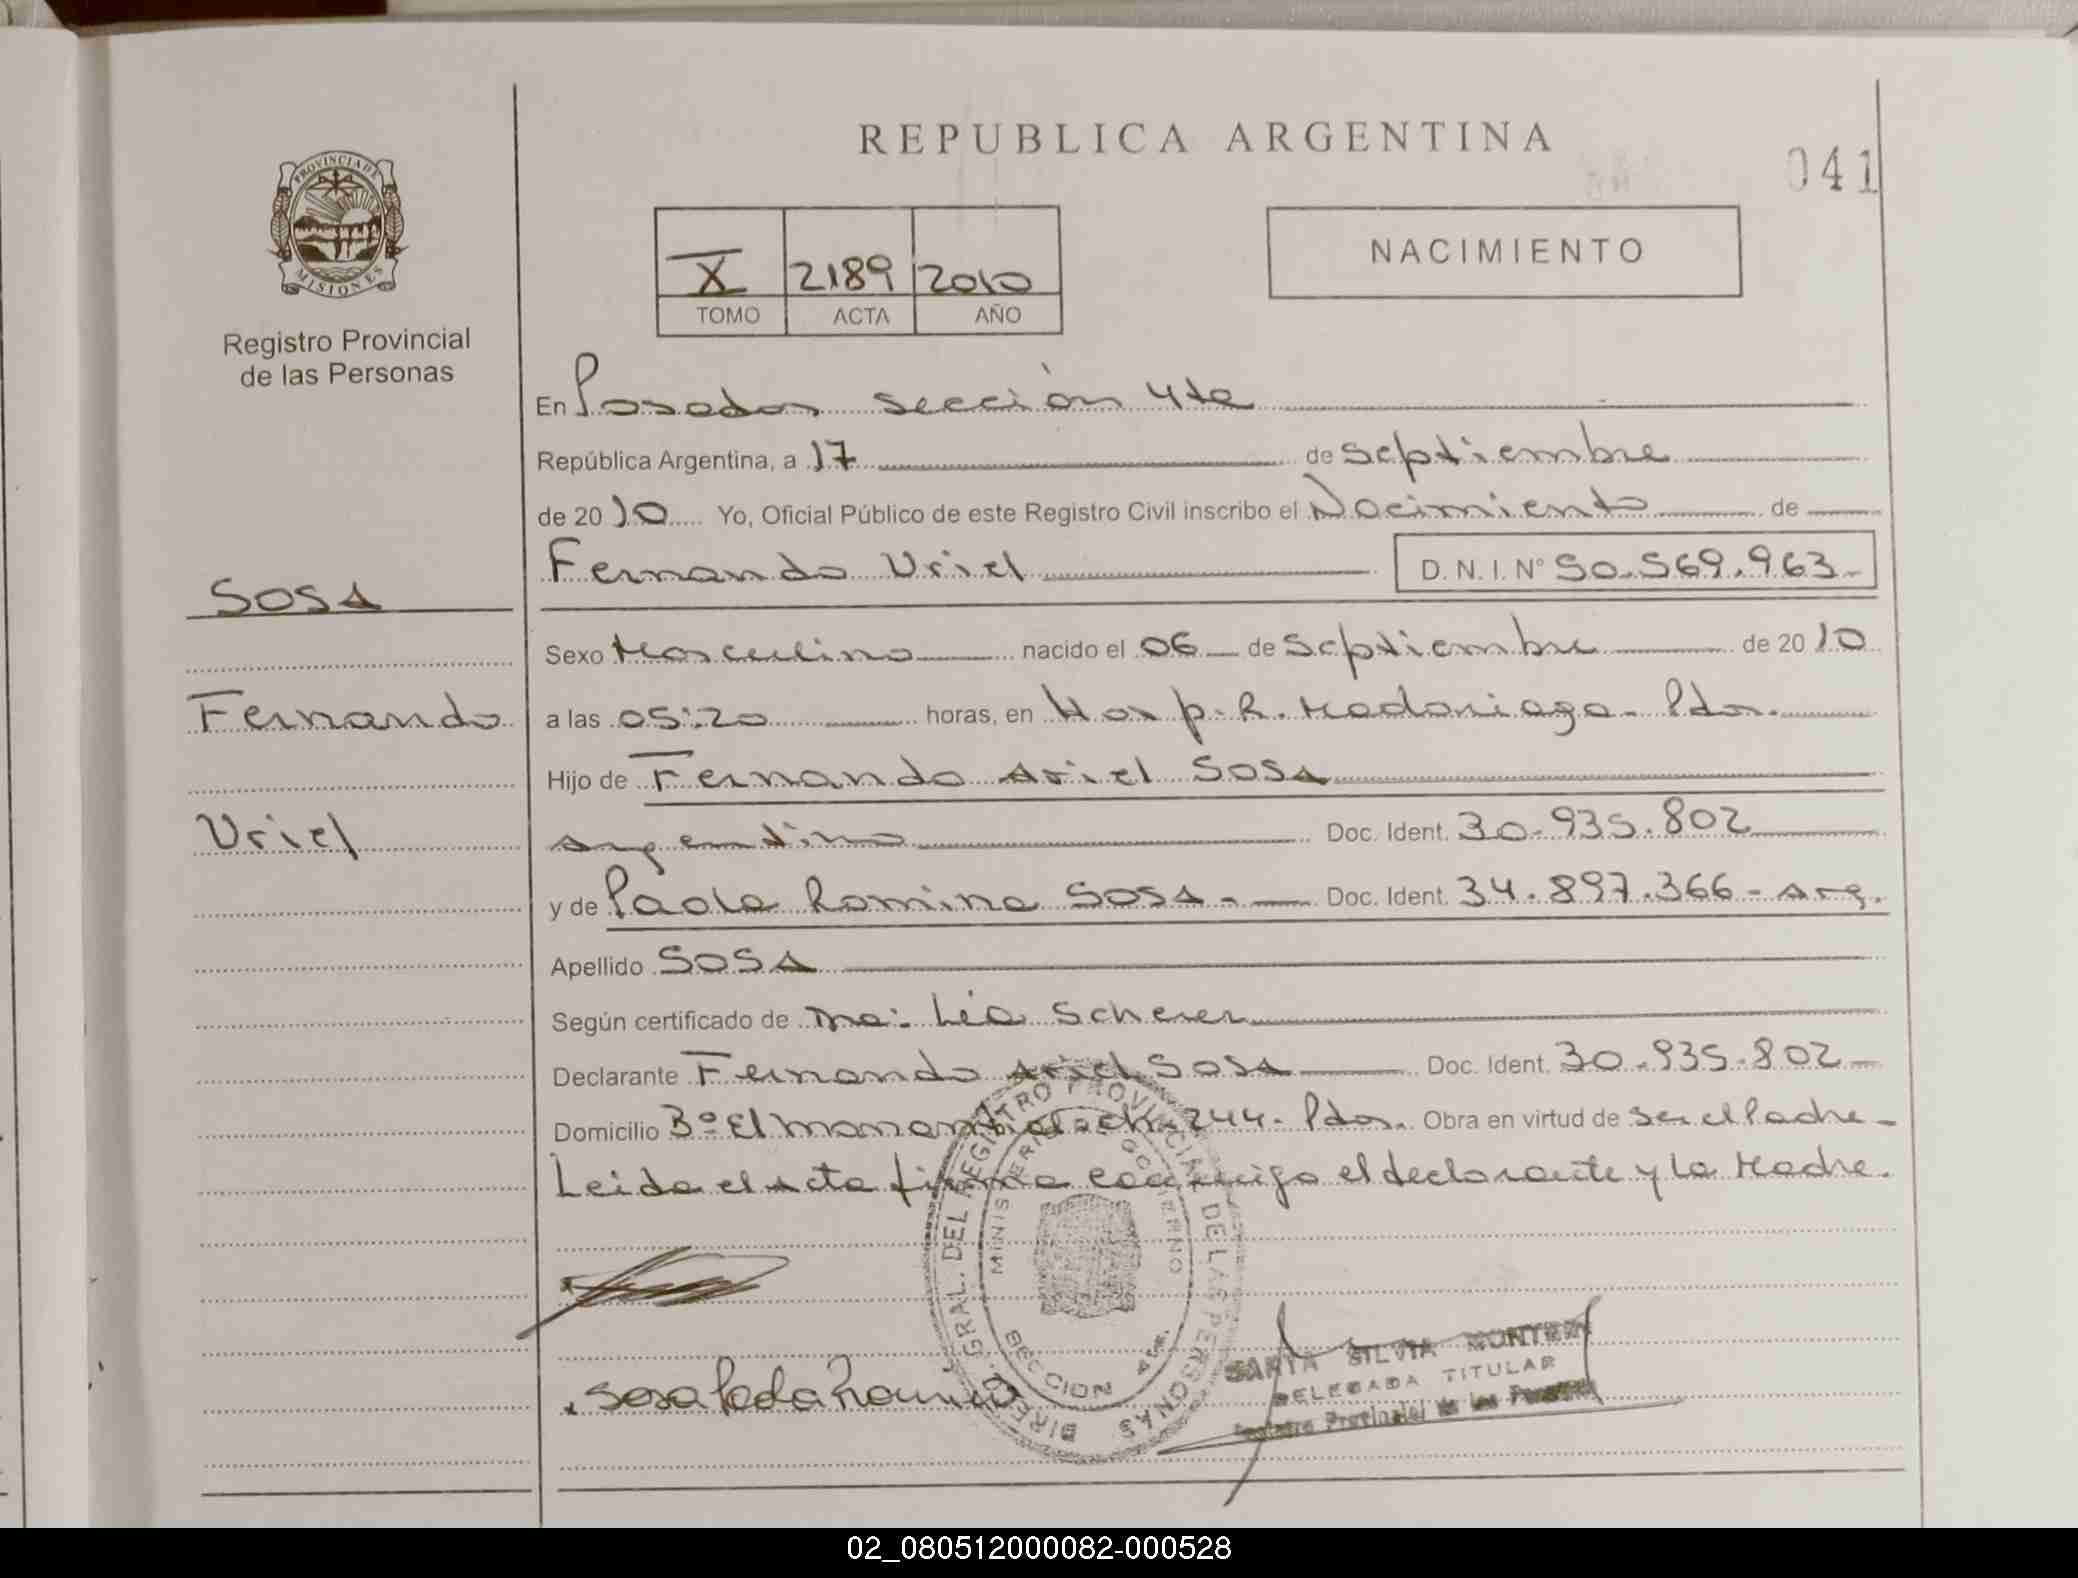 REPUBLICA ARGENTINA
041
PROVINCIA DE MISIONES
Registro Provincial
de las Personas
X 2189 2010
TOMO ACTA AÑO
NACIMIENTO
En Posadas sección 4ta
República Argentina, a 17 de septiembre
de 2010 Yo, Oficial Público de este Registro Civil inscribo el Nacimiento de
Fernando Uriel D.N.I. Nº 50.569.963-
SOSA
Fernando
Uriel
Sexo Masculino nacido el 06 de septiembre de 2010
a las 05:20 horas, en Hosp. R. Madariaga - Pdas.
Hijo de Fernando Ariel SOSA
argentino Doc. Ident. 30.935.802
y de Paola Romina SOSA.- Doc. Ident. 34.897.366 - Arg.
Apellido SOSA
Según certificado de Ma: Lía Scherer
Declarante Fernando Ariel SOSA Doc. Ident. 30.935.802
Domicilio Bº El Manantial - ch. 244 - Pdas. Obra en virtud de ser el Padre -
Leida el acta firma conmigo el declarante y la Madre.
DIREC. GRAL. DEL REGISTRO PROVINCIAL DE LAS PERSONAS
MINISTERIO DE GOBIERNO
SECCION 4ta.
Sosa Paola Romina
SILVIA
DELEGADA TITULAR
Registro Provincial de las Personas
02_080512000082-000528